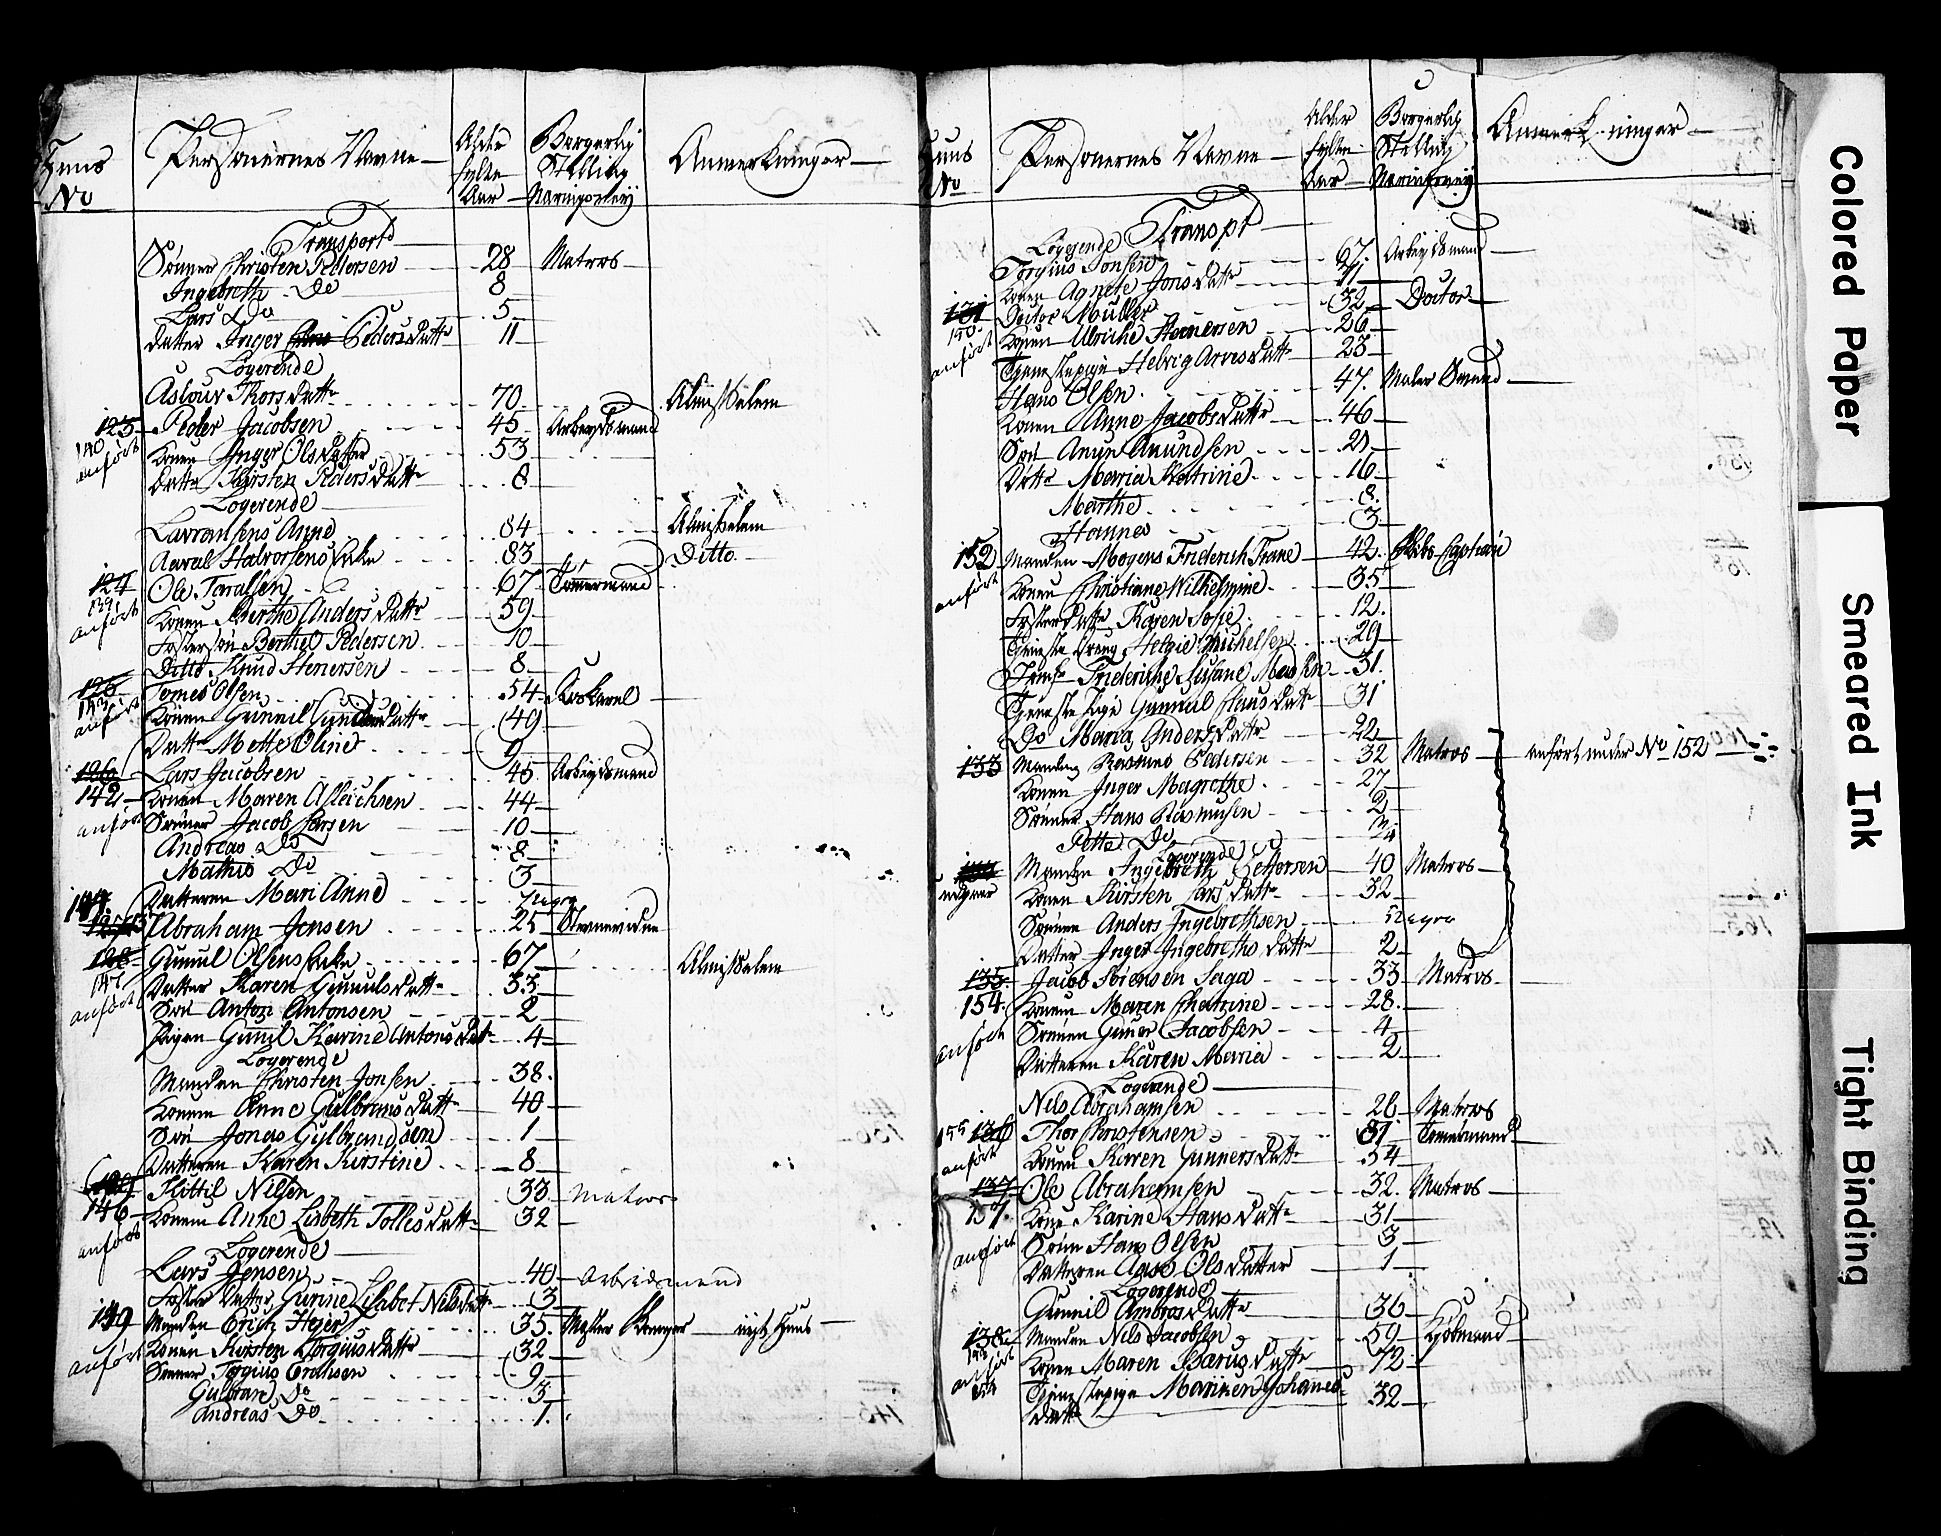 Huus No
Personernes Navne
Alder fyldte Aar
Borgerlig Stilling Næringsvey
Anmerkninger
Transport
Sønner Christen Pedersen 28 Matros
Ingebreth Do 8
Lars Do 5
Datter Inger Peders Datter 11
Logerende
Aslouv Thors Datter 70 Almisselem
123 140 anført Peder Jacobsen 45 Arbeydsmand
Konen Inger Ols Datter 53
Datter Kirsten Peders Datter 8
Logerende
Lavransens Anne 84 Almisselem
Aaral Halvorsens Enke 83 Ditto
124 139 anført Ole Taralsen 67 Tømermand
Konen Berthe Anders Datter 59
Fostersøn Berthel Pedersen 10
Ditto Knud Stenersen 8
143 anført Tomes Olsen 54
Konen Gunnil Datter 49
Datter Mette Oline 9
126 142 anført Lars Jacobsen 45 Arbeydsmand
Konen Maren Asleichsen 44
Sønner Jacob Larsen 10
Andreas Do 8
Mathis Do 3
Datteren Mari Anne
Abraham Jensen 25
128 anført Gunnil Olsens Enke 67 Almisselem
Datter Karen Gunnuls Datter 33
Søn Anton Antonsen 2
Pigen Gunnil Karine Antons Datter 4
Logerende
Manden Christen Jonsen 38
Konen Anne Gulbrans Datter 40
Søn Jonas Gulbrandsen 1
Datteren Karen Kirstine 8
129 146 anført Kittil Nilsen 33 Matros
Konen Anne Lisbeth Tolles Datter 32
Logerende
Lars Jensen 40 Arbeidsmand
Foster Datter Gurine Lisabet Nilsdatter 3
149 anført Manden Erich Hejer 35 nyt Huus
Konen Kirsten Torgius Datter 32
Sønner Torgius Erichsen 9
Gulbran Do 5
Andreas Do 1
Huus No
Personernes Navne
Alder fyldte Aar
Borgerlig Stilling Næringsvey
Anmerkninger
Transpt
Logerende
Torgius Jonsen 67 Arbeydsmand
Konen Agnete Jons Datter 71
131 150 anført Doctor Müller 32 Doctor
Konen Ulriche Stenersen 26
Tjenestepige Helvig Arves Datter 23
Hans Olsen 47
Konen Anne Jacobs Datter 46
Søn Anun Anundsen 21
Datter Marria Katrine 16
Marthe 8
Hanne 3
152 anført Manden Mogens Friderich Thane 42 Skibs Captain
Konen Christiane Wilhelmine 35
Foster Datter Karen Sofie 12
Tjeneste Dreng Helgie Michelsen 29
Jomfr Frideriche Susane 31
Tjeneste Pige Gunnild Hans Datter 31
Do Maria Anders Datter 22
133 Manden Rasmus Pedersen 32 Matros anført under No 152
Konen Inger Magrethe 27
Sønner Hans Rasmusen 2
Do
Logerende
udgaar Manden Ingebreth Pettersen 40 Matros
Konen Kirsten Lars Datter 32
Sønnen Anders Ingebrethsen
Datter Inger Ingebreths Datter 2
135 154 anført Jacob Sørensen Saga 33 Matros
Konen Maren Chatrine 28
Sønnen Gunner Jacobsen 4
Datteren Karen Maria 2
Logerende
Nils Abrahamsen 26 Matros
155 136 anført Thor Christensen Tømermand
Konen Karen Gunners Datter 54
137 157 anført Ole Abrahamsen 32 Matros
Kone Karine Hans Datter 31
Sønn Hans Olsen 3
Datteren Aase Ols Datter 1
Logerende
Gunnil Ambros Datter 36
138 anført Manden Nils Jacobsen 59 Kjøbmand
Konen Maren Barus Datter 72
Tjenestepige Mariken Johannes Datter 32
Colored Paper
Smeared Ink
Tight Binding